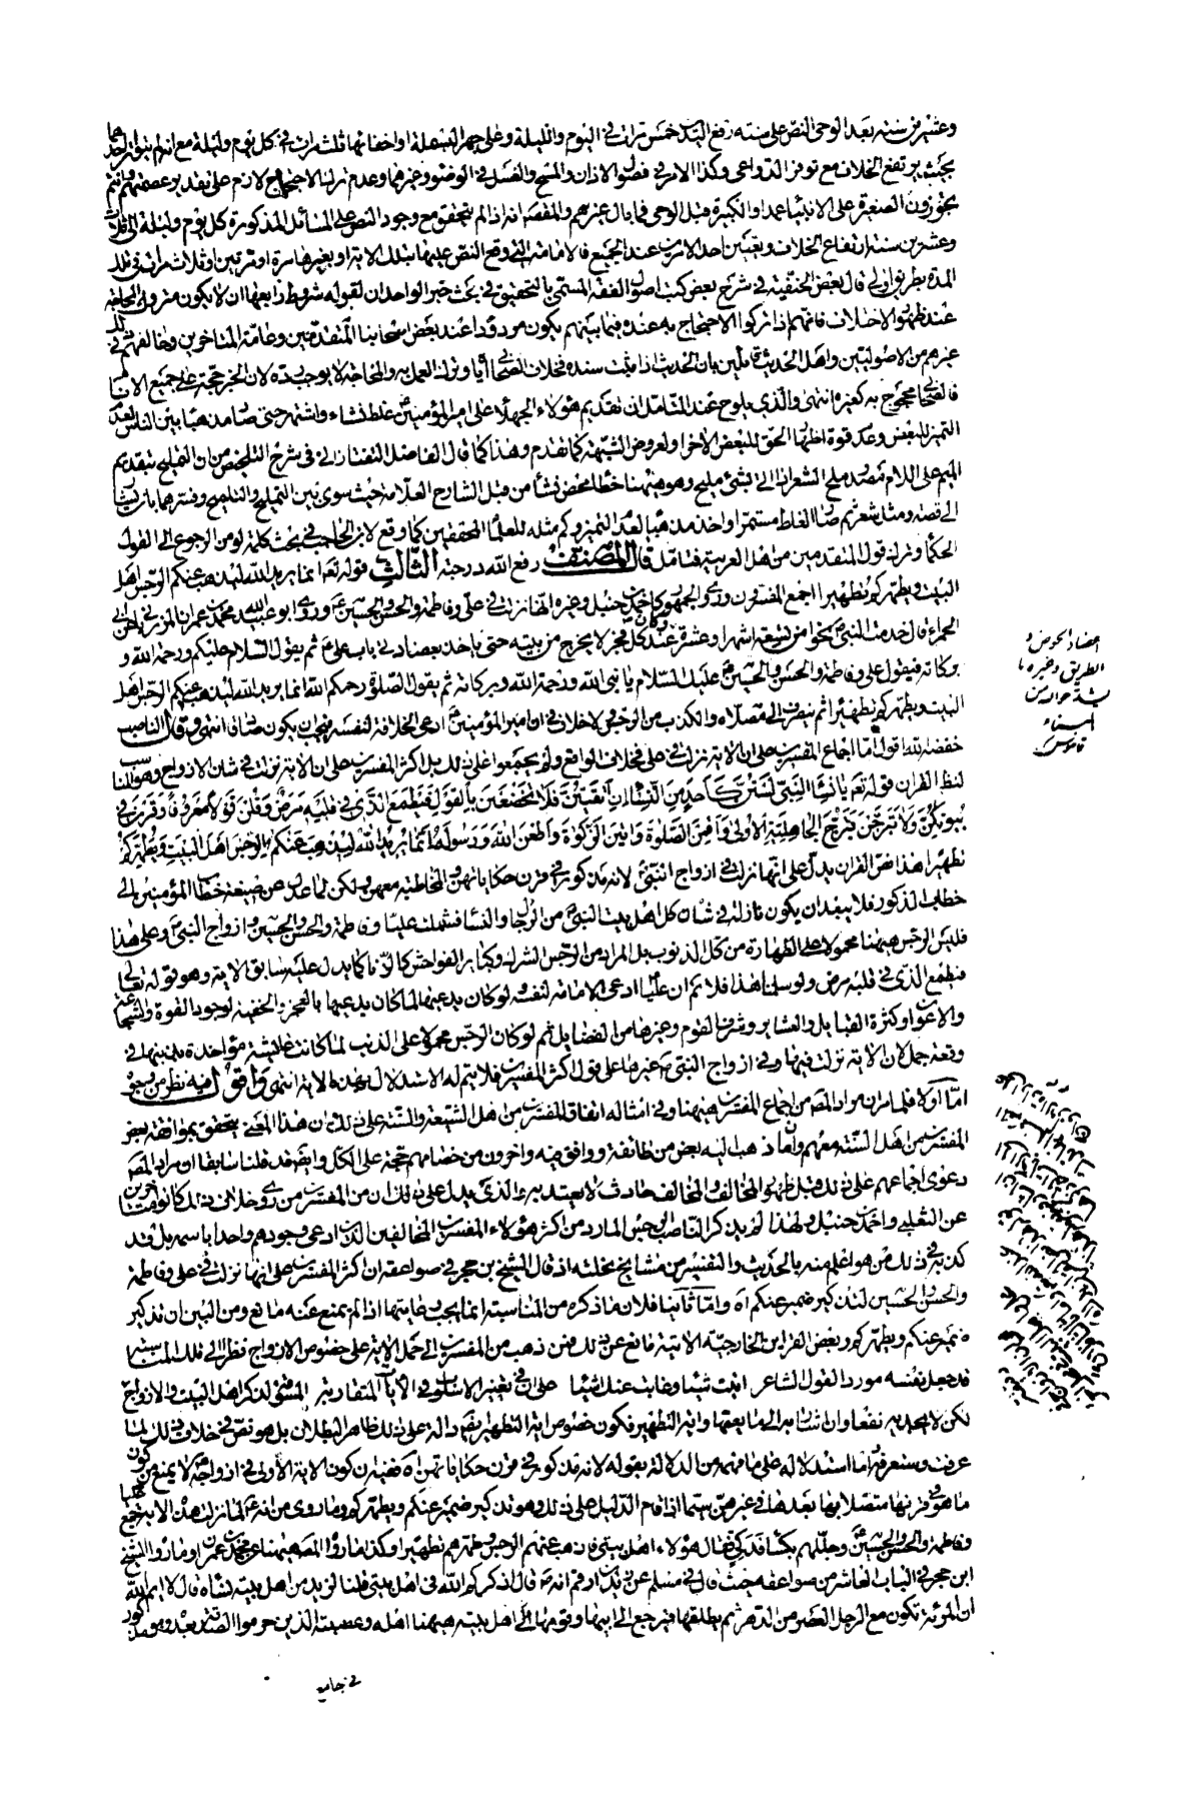 وعشرين سنة بعد الوحى النص على سنته رفع اليد خمس مرات فى اليوم والليلة وعلى جهر البسملة او اخفاتها ثلث مرات فى كل يوم وليلة مع انه لم يتواتر احدهما
بحيث يرتفع الخلاف مع توفر الدواعى وكذا الامر فى فصول الاذان والمسح والغسل فى الوضوء وغيرهما وعدم ترك الاحتجاج لازم على تقدير عصمتهم وانتم
تجوزون الصغيرة على الانبياء عمدا والكبيرة قبل الوحى فما بال غيرهم والمقصد انه اذا لم يتحقق مع وجود النص على المسائل المذكورة كل يوم وليلة الى ثلاث
وعشرين سنة ارتفاع الخلاف وتعيين احد الامرين عند الجميع فالامامة التى وقع النص عليها بتلك الاية او بغيرها مرة او مرتين او ثلاث مرات فى تلك
المدة بطريق اولى قال بعض الحنفية فى شرح بعض كتب اصول الفقه المسمى بالتحقيق فى بحث خبر الواحد ان لقوله شروط رابعها ان لا يكون متروك المحاجة
عند ظهور الاختلاف فانهم اذا تركوا الاحتجاج به عنده فيما بينهم يكون مردودا عند بعض اصحابنا المتقدمين وعامة المتاخرين وخالفهم فى ذلك
غيرهم من الاصوليين واهل الحديث قائلين بان الحديث اذا ثبت سنده فخلاف الصحابى اياه وترك العمل به والمحاجة لا يوجب رده لان الخبر حجة على جميع الامة
فالصحابى محجوج به كغيره انتهى والذى يلوح عند التامل ان تقديم هؤلاء الجهلاء على امير المؤمنين ع غلط نشاء واشتهر حتى صار مذهبا بين الناس لعدم
التميز للبعض وعدم قوة اظهار الحق للبعض الاخر او لعروض الشبهة كما تقدم وهذا كما قال الفاضل التفتازانى فى شرح التلخيص من ان التمليح بتقديم
الميم على اللام مصدر ملح الشعر اذا اتى بشئ مليح وهو ههنا خطا محض نشا من قبل الشارح العلامة حيث سوى بين التمليح والتلميح وفسرهما بان يشار
الى قصة ومثل شعر ثم صار الغلط مستمرا واخذ مذهبا لعدم التميز وكم مثله للعلماء المحققين كما وقع لابن الحاجب فى بحث كلمة لو من الرجوع الى القول
الحكماء وترك قول المتقدمين من اهل العربية فتامل قال المصنف رفع الله درجته الثالث قوله تعالى انما يريد الله ليذهب عنكم الرجس اهل
البيت ويطهركم تطهيرا اجمع المفسرون وروى الجمهور كاحمد بن حنبل وغيره انها نزلت فى على وفاطمة والحسن والحسين ع وروى ابو عبد الله محمد بن عمران المرزبانى عن ابى
الحمراء قال خدمت النبى ص نحوا من تسعة اشهر او عشرة عند كل فجر لا يخرج من بيته حتى ياخذ بعضادتى باب على ع ثم يقول السلام عليكم ورحمة الله و
بركاته فيقول على وفاطمة والحسن والحسين ع عليك السلام يا نبى الله ورحمة الله وبركاته ثم يقول الصلوة رحمكم الله انما يريد الله ليذهب عنكم الرجس اهل
البيت ويطهركم تطهيرا ثم ينصرف الى مصلاه والكذب من الرجس ولا خلاف فى ان امير المؤمنين ع ادعى الخلافة لنفسه فيجب ان يكون صادقا انتهى وقال الناصب
خفضه الله اقول اما اجماع المفسرين على ان الاية نزلت فى على فخلاف الواقع ولم يجمعوا على ذلك بل اكثر المفسرين على ان الاية نزلت فى شان الازواج وهو المناسب
لنظم القران قوله تعالى يا نساء النبى لستن كاحد من النساء ان اتقيتن فلا تخضعن بالقول فيطمع الذى فى قلبه مرض وقلن قولا معروفا وقرن فى
بيوتكن ولا تبرجن تبرج الجاهلية الاولى واقمن الصلوة واتين الزكوة واطعن الله ورسوله انما يريد الله ليذهب عنكم الرجس اهل البيت ويطهركم
تطهيرا هذا نص القران يدل على انها نزلت فى ازواج النبى ص لانه مذكور فى قرن حكاياتهن والمخاطبة معهن ولكن لما عدل عن صيغة خطاب المؤمنين الى
خطاب الذكور فلا يبعد ان يكون نازلة فى شان كل اهل بيت النبى ص من الرجال والنساء فشملت عليا وفاطمة والحسن والحسين ع وازواج النبى ص وعلى هذا
فليس الرجس ههنا محمولا على الطهارة من كل الذنوب بل المراد من الرجس الشرك وكبائر الفواحش كالزنا كما يدل عليه سابق الاية وهو قوله تعالى
فيطمع الذى فى قلبه مرض ولو سلمنا هذا فلا نم ان عليا ادعى الامامة لنفسه ولو كان يدعيها لما كان يدعيها بالعجز والخفية لوجود القوة والشجاعة
والاعوان وكثرة القبايل والعشاير وشرف القوم وغيرها من الفضايل ثم لو كان الرجس محمولا على الذنب لما كانت عايشة مؤاخذة بذنبها فى
وقعة جمل لان الاية نزلت فيها وفى ازواج النبى ص غيرها على قول اكثر المفسرين فلا يتم له الاستدلال بهذه الاية انتهى واقول فيه نظر من وجوه
اما اولا فلما مر ان مراد المصنف من اجماع المفسرين ههنا وفى امثاله اتفاق المفسرين من اهل الشيعة والسنة على ذلك وان هذا المعنى يتحقق بموافقة بعض
المفسرين من اهل السنة معهم وان ما ذهب اليه بعض من طائفة ووافق فيه واخرون من خصامهم حجة على الكل وايضا قد قلنا سابقا ان مراد المصنف
دعوى اجماعهم على ذلك قبل ظهور المخالف والمخالف حادث لا يعتد به والذى يدل على ذلك ان من المفسرين من روى خلاف ذلك كانوا متاخرين
عن الثعلبى واحمد بن حنبل ولهذا لم يذكر الناصب الرجس المارد من اكثر هؤلاء المفسرين المخالفين الذين ادعى وجودهم واحدا باسمه بل قد
كذبه فى ذلك من هو اعلم منه بالحديث والتفسير من مشايخ نحلته اذ قال الشيخ ابن حجر فى صواعقه ان اكثر المفسرين على انها نزلت فى على وفاطمة
والحسن والحسين لتذكير ضمير عنكم اه واما ثانيا فلان ما ذكره من المناسبة انما يجب رعايتها اذا لم يمنع عنه مانع ومن البين ان تذكير
ضمير عنكم ويطهركم وبعض القراين الخارجية الاتية مانع عن ذلك فمن ذهب من المفسرين الى حمل الاية على خصوص الازواج نظرا الى تلك المناسبة
قد جعل نفسه موردا لقول الشاعر حفظت شيئا وغابت عنك اشياء على ان فى تغيير الاسلوب فى الايات المتقاربة المسوق لذكر اهل البيت والازواج
لكن لا يجديه نفعا وان اشار الى متابعتها واية التطهير فكون خصوص اية التطهير دالة على ذلك ظاهر البطلان بل هو نص فى خلاف ذلك لما
عرفت وستعرفه اما استدلاله على ما فهمه من الدلالة بقوله لانه مذكور فى قرن حكاياتهن اه ففيه ان كون الاية الاولى فى ازواجه لا يمنع من كون
ما هو فى قرنها متصلا بها بعدها فى غيرهن سيما اذا قام الدليل على ذلك وهو تذكير ضمير عنكم ويطهركم وما روى من انه ص لما نزلت هذه الاية جمع عليا
وفاطمة والحسن والحسين ع وجللهم بكساء فدكى فقال هؤلاء اهل بيتى فاذهب عنهم الرجس وطهرهم تطهيرا وكذا ما رواه المصنف ههنا عن محمد بن عمران وما رواه الشيخ
ابن حجر فى الباب العاشر من صواعقه حيث قال فى مسلم عن زيد بن ارقم انه ص قال اذكركم الله فى اهل بيتى قلنا لزيد من اهل بيته نساؤه قال لا ايم الله
ان المرئة تكون مع الرجل العصر من الدهر ثم يطلقها فيرجع الى ابيها وقومها الى اهل بيته ههنا اهله وعصبته الذين حرموا الصدقة بعده ويؤيده
فى جامع
اعضاد الحوض و
الطريق وغيره ما
يشد حواليه من
البناء
قاموس